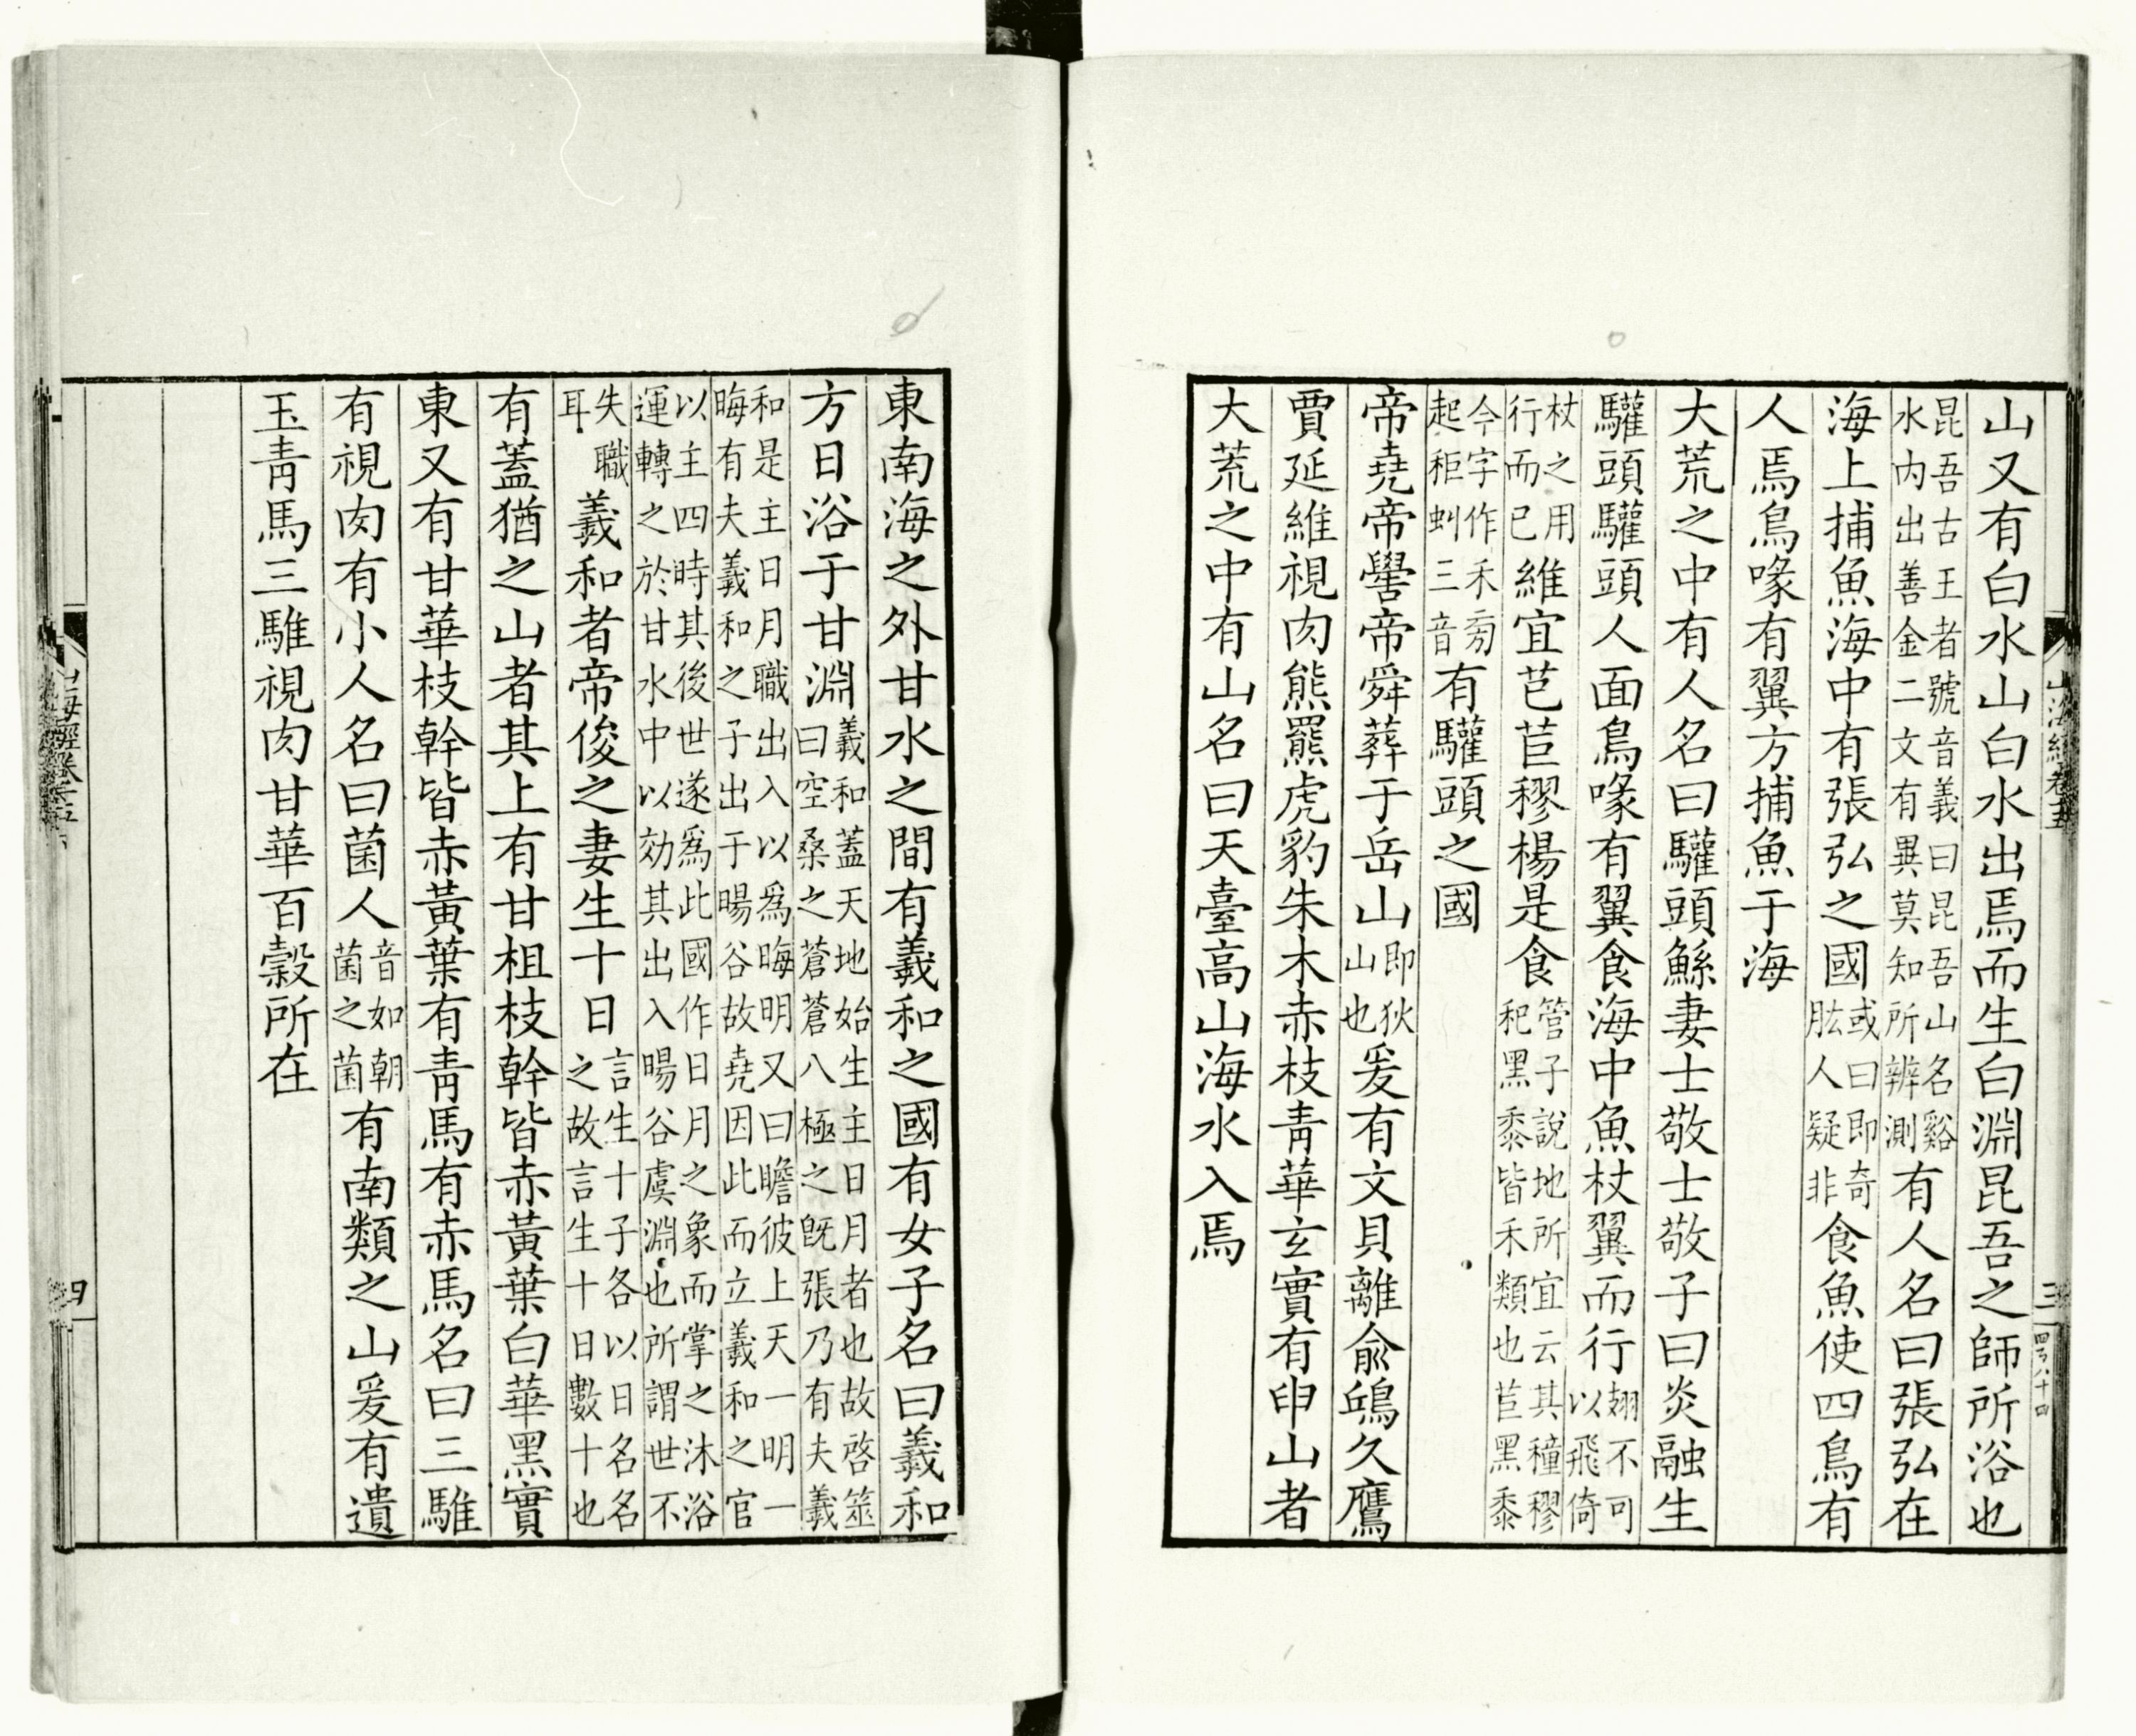 山海經卷十五
三
四百八十四
山又有白水山白水出焉而生白淵昆吾之師所浴也
昆吾古王者號音義曰昆吾山名谿水内出善金二文有異莫知所辨測有人名曰張弘在
海上捕魚海中有張弘之國或曰即奇肱人疑非食魚使四鳥有
人焉鳥喙有翼方捕魚于海
大荒之中有人名曰驩頭鯀妻士敬士敬子曰炎融生
驩頭驩頭人面鳥喙有翼食海中魚杖翼而行翅不可以飛倚
杖之用行而已維宜芑苣穋楊是食管子說地所宜云其穜穋杞黑黍皆禾類也苣黑黍
今字作禾旁起秬虯三音有驩頭之國
帝堯帝嚳帝舜葬于岳山即狄山也爰有文貝離俞鴟久鷹
賈延維視肉熊羆虎豹朱木赤枝青華玄實有申山者
大荒之中有山名曰天臺高山海水入焉
東南海之外甘水之間有羲和之國有女子名曰羲和
方日浴于甘淵羲和蓋天地始生主日月者也故啓筮曰空桑之蒼蒼八極之旣張乃有夫羲
和是主日月職出入以爲晦明又曰瞻彼上天一明一晦有夫羲和之子出于暘谷故堯因此而立羲和之官
以主四時其後世遂爲此國作日月之象而掌之沐浴運轉之於甘水中以效其出入暘谷虞淵也所謂世不
失職耳羲和者帝俊之妻生十日言生十子各以日名名之故言生十日數十也
有蓋猶之山者其上有甘柤枝幹皆赤黃葉白華黑實
東又有甘華枝幹皆赤黃葉有青馬有赤馬名曰三騅
有視肉有小人名曰菌人音如朝菌之菌有南類之山爰有遺
玉青馬三騅視肉甘華百穀所在
山海經卷十五
四